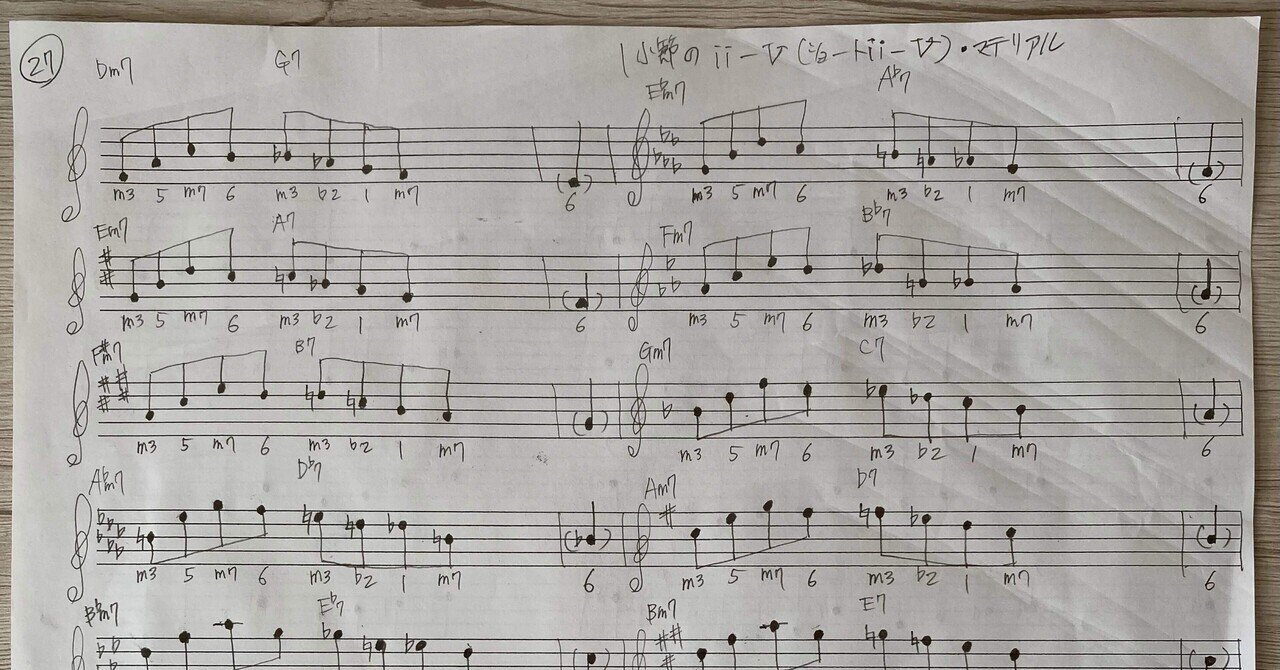 27 1小節のii-V(ショートii-V)・マテリアル
Dm7 G7 E♭m7 A♭7
m3 5 m7 6 m3 ♭2 1 m7 6 m3 5 m7 6 m3 ♭2 1 m7 6
Em7 A7 Fm7 B♭7
m3 5 m7 6 m3 ♭2 1 m7 6 m3 5 m7 6 m3 ♭2 1 m7 6
F#m7 B7 Gm7 C7
m3 5 m7 6 m3 ♭2 1 m7 6 m3 5 m7 6 m3 ♭2 1 m7 6
A♭m7 D♭7 Am7 D7
m3 5 m7 6 m3 ♭2 1 m7 6 m3 5 m7 6 m3 ♭2 1 m7 6
B♭m7 E♭7 Bm7 E7